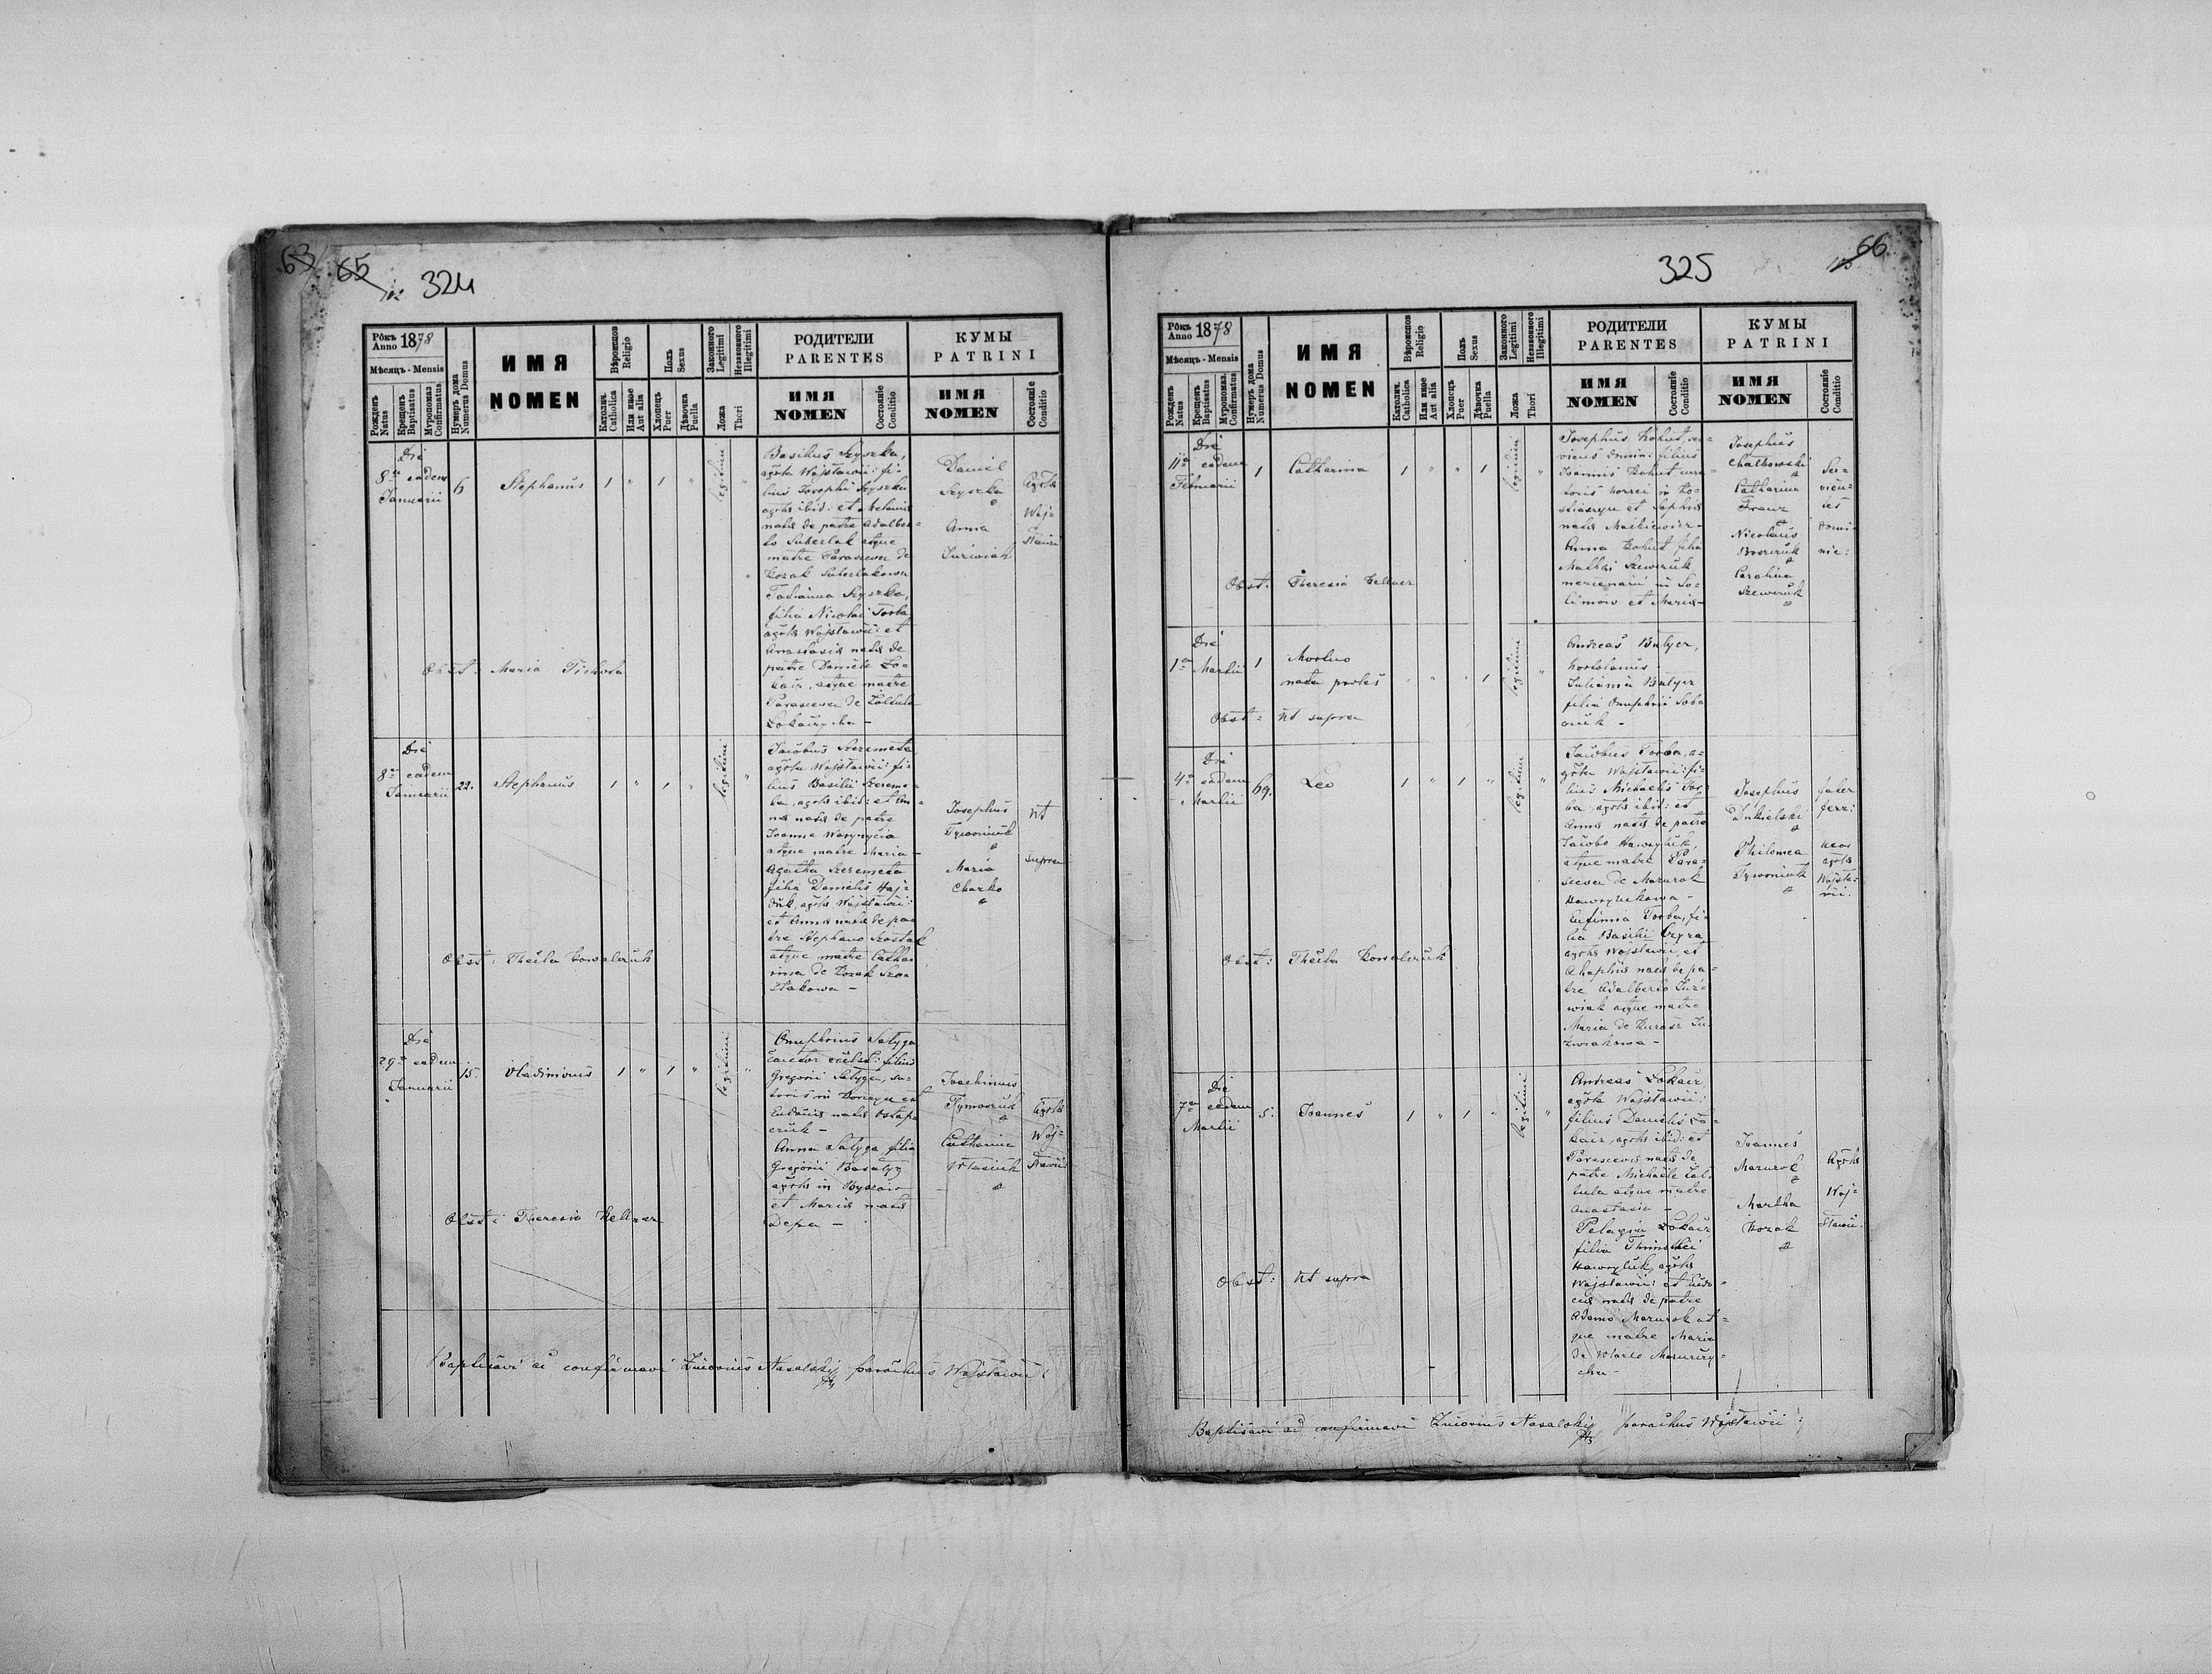 63
65
324
Рôкъ 1878
Anno
Мѣсяць - Mensis
Рожденъ
Natus
Крещенъ
Baptisatus
Мѵропомаз
Confirmatus
Нумеръ дома
Numerus Domus
ИМЯ
NOMEN
Вѣроиспов
Religio
Католич.
Catholica
Или иное
Aut alia
Полъ
Sexus
Хлопецъ
Puer
Дѣвочка
Puella
Законного
Legitimi
Незаконного
Illegitimi
Ложа
Thori
РОДИТЕЛИ
PARENTES
ИМЯ
NOMEN
Состояніе
Conditio
КУМЫ
PATRINI
ИМЯ
NOMEN
Состояніе
Conditio
Die
8va eadem
Januarii
6
Stephanus
1 " 1 "
legitimi
"
Basilius Szyszka,
agrta Wojsławii: fi-
lius Josephi Szyszka
agrtis ibid: et Melania
nata de patre Adalber-
to Suberlak atque
matre Parascewa de
Kozak Suberlakowa
Tatianna Szyszka,
filia Nicolai Torba
agrtis Wojsławii: et
Anastasia nata de
patre Daniele Ło-
kaicz, atque matre
Parascewa de Żółtula
Łokaiczycha -
Daniel
Szyszka
Anna
Juzwiak
Agrtae
Woj-
sławii
Obst: Maria
Die
8va eadem
Januarii
22.
Stephanus
1 " 1 "
legitimi
"
Jacobus Szeremeta
agrta Wojsławii: fi-
lius Basilii Szereme-
ta, agrtis ibid: et An-
na nata de patre
Joanne
atque matre Maria -
Agatha Szeremeta
filia Danielis Haj-
duk, agrtis Wojsławii:
et Anna nata de pa-
tre Stephano Szostak
atque matre Catha
rina de Kozak Szos
takowa -
Josephus
Tywoniuk
Maria
Charko
Ut
supra
Obst: Thecla Kowalczuk
Die
29na eadem
Januarii
15.
Vladimirus
1 " 1 "
legitimi
"
Onuphrius Sałyga
cantor eccles: filius
Gregorii Sałyga, su-
toris in et
Eudocia nata Ostap-
czuk -
Anna Sałyga filia
Gregorii
agrtis in Byszów
et Maria nata
Depa -
Joachimus
Tymoszuk
Catharina
Własiuk
Agrtae
Woj-
sławii
Obst: Theresia Kellner
Baptisavi ac confirmavi Zenonius Nasalskij parochus Wojsławii:
66
325
Рôкъ 1878
Anno
Мѣсяць - Mensis
Рожденъ
Natus
Крещенъ
Baptisatus
Мѵропомаз.
Confirmatus
Нумеръ дома
Numerus Domus
ИМЯ
NOMEN
Вѣроиспов
Religio
Католич.
Catholica
Или иное
Aut alia
Полъ
Sexus
Хлопецъ
Puer
Дѣвочка
Puella
Законного
Legitimi
Незаконного
Illegitimi
Ложа
Thori
РОДИТЕЛИ
PARENTES
ИМЯ
NOMEN
Состояніе
Conditio
КУМЫ
PATRINI
ИМЯ
NOMEN
Состояніе
Conditio
Die
11a eadem
Februarii
1
Catharina
1 " " 1
legitimi
"
Josephus Kohut, ser-
viens domini: filius
Joannis Kohut cura-
toris horrei in
et Sophia
nata Maćkiewicz -
Anna Kohut filia
Mathei Szewczuk
mercenarii in So-
limow et Maria -
Josephus
Chałkowski
Catharina
Franz
Nicolaus
Carolina
Szewczuk
Ser-
vien-
tes
domi-
nic:
Obst. Theresia Kellner
Die
1a Martii
1
Mortuo
nata proles
" " " 1
legitimi
"
Andreas Bulyer,
hortolanus -
Julianna Bulyer
filia Onuphrii Sobo
-
Obst: Ut supra
Die
4a eadem
Martii
69.
Leo
1 " 1 "
legitimi
"
Jacobus Torba, a-
grta Wojsławii: fi-
lius Michaelis Tor-
ba, agrtis ibid: et
Anna nata de patre
Jacobo Hawryluk,
atque matre Para-
scewa de Mazurok
Hawrylukowa -
Eufimia Torba, fi-
lia Basilii Czyra
agrtis Wojsławii, et
Ahaphia nata de pa-
tre Adalberto Juz-
wiak atque matre
Maria de Ju-
zwiakowa -
Josephus
Dukielski
Philomea
Tywoniuk
faber
ferr:
uxor
agrtis
Wojsła-
wii.
Obst: Thecla Kowalczuk
Die
7ma eadem
Martii
5.
Joannes
1 " 1 "
legitimi
"
Andreas Łokaicz
agrta Wojsławii:
filius Danielis Ło-
kaicz, agrtis ibid: et
Parascewa nata de
patre Michaele Żół-
tula atque matre
Anastasia -
Pelagia Łokaicz
filia Thimothei
Hawryluk, agrtis
Wojsławii: et Eudo-
cia nata de patre
Adamo Mazurok at-
que matre Maria
de Mazurczy-
cha -
Joannes
Mazurok
Martha
Kozak
Agrtae
Woj-
sławii:
Obst: Ut supra
Baptisavi ac confirmavi Zenonius Nasalskij parochus Wojsławii: